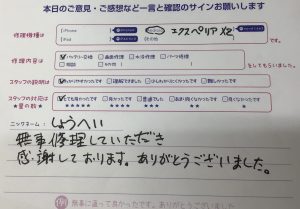 本日のご意見・ご感想など一言と確認のサインお願いします
修理機種は
iPhone
iPad
iPod
その他
エクスペリアXZ
修理内容は
バッテリー交換
画面修理
水没修理
パーツ修理
をしてもらいました。
スタッフの説明は
わかりやすかったです
スタッフの対応は
★星の数★
とても良かったです
良かったです
普通でした
★★★★★
★★★★
★★★
★★
★
ニックネーム:しょうへい
無事修理していただき
感謝しております。ありがとうございました。
無事に直って良かったです。ありがとうございました